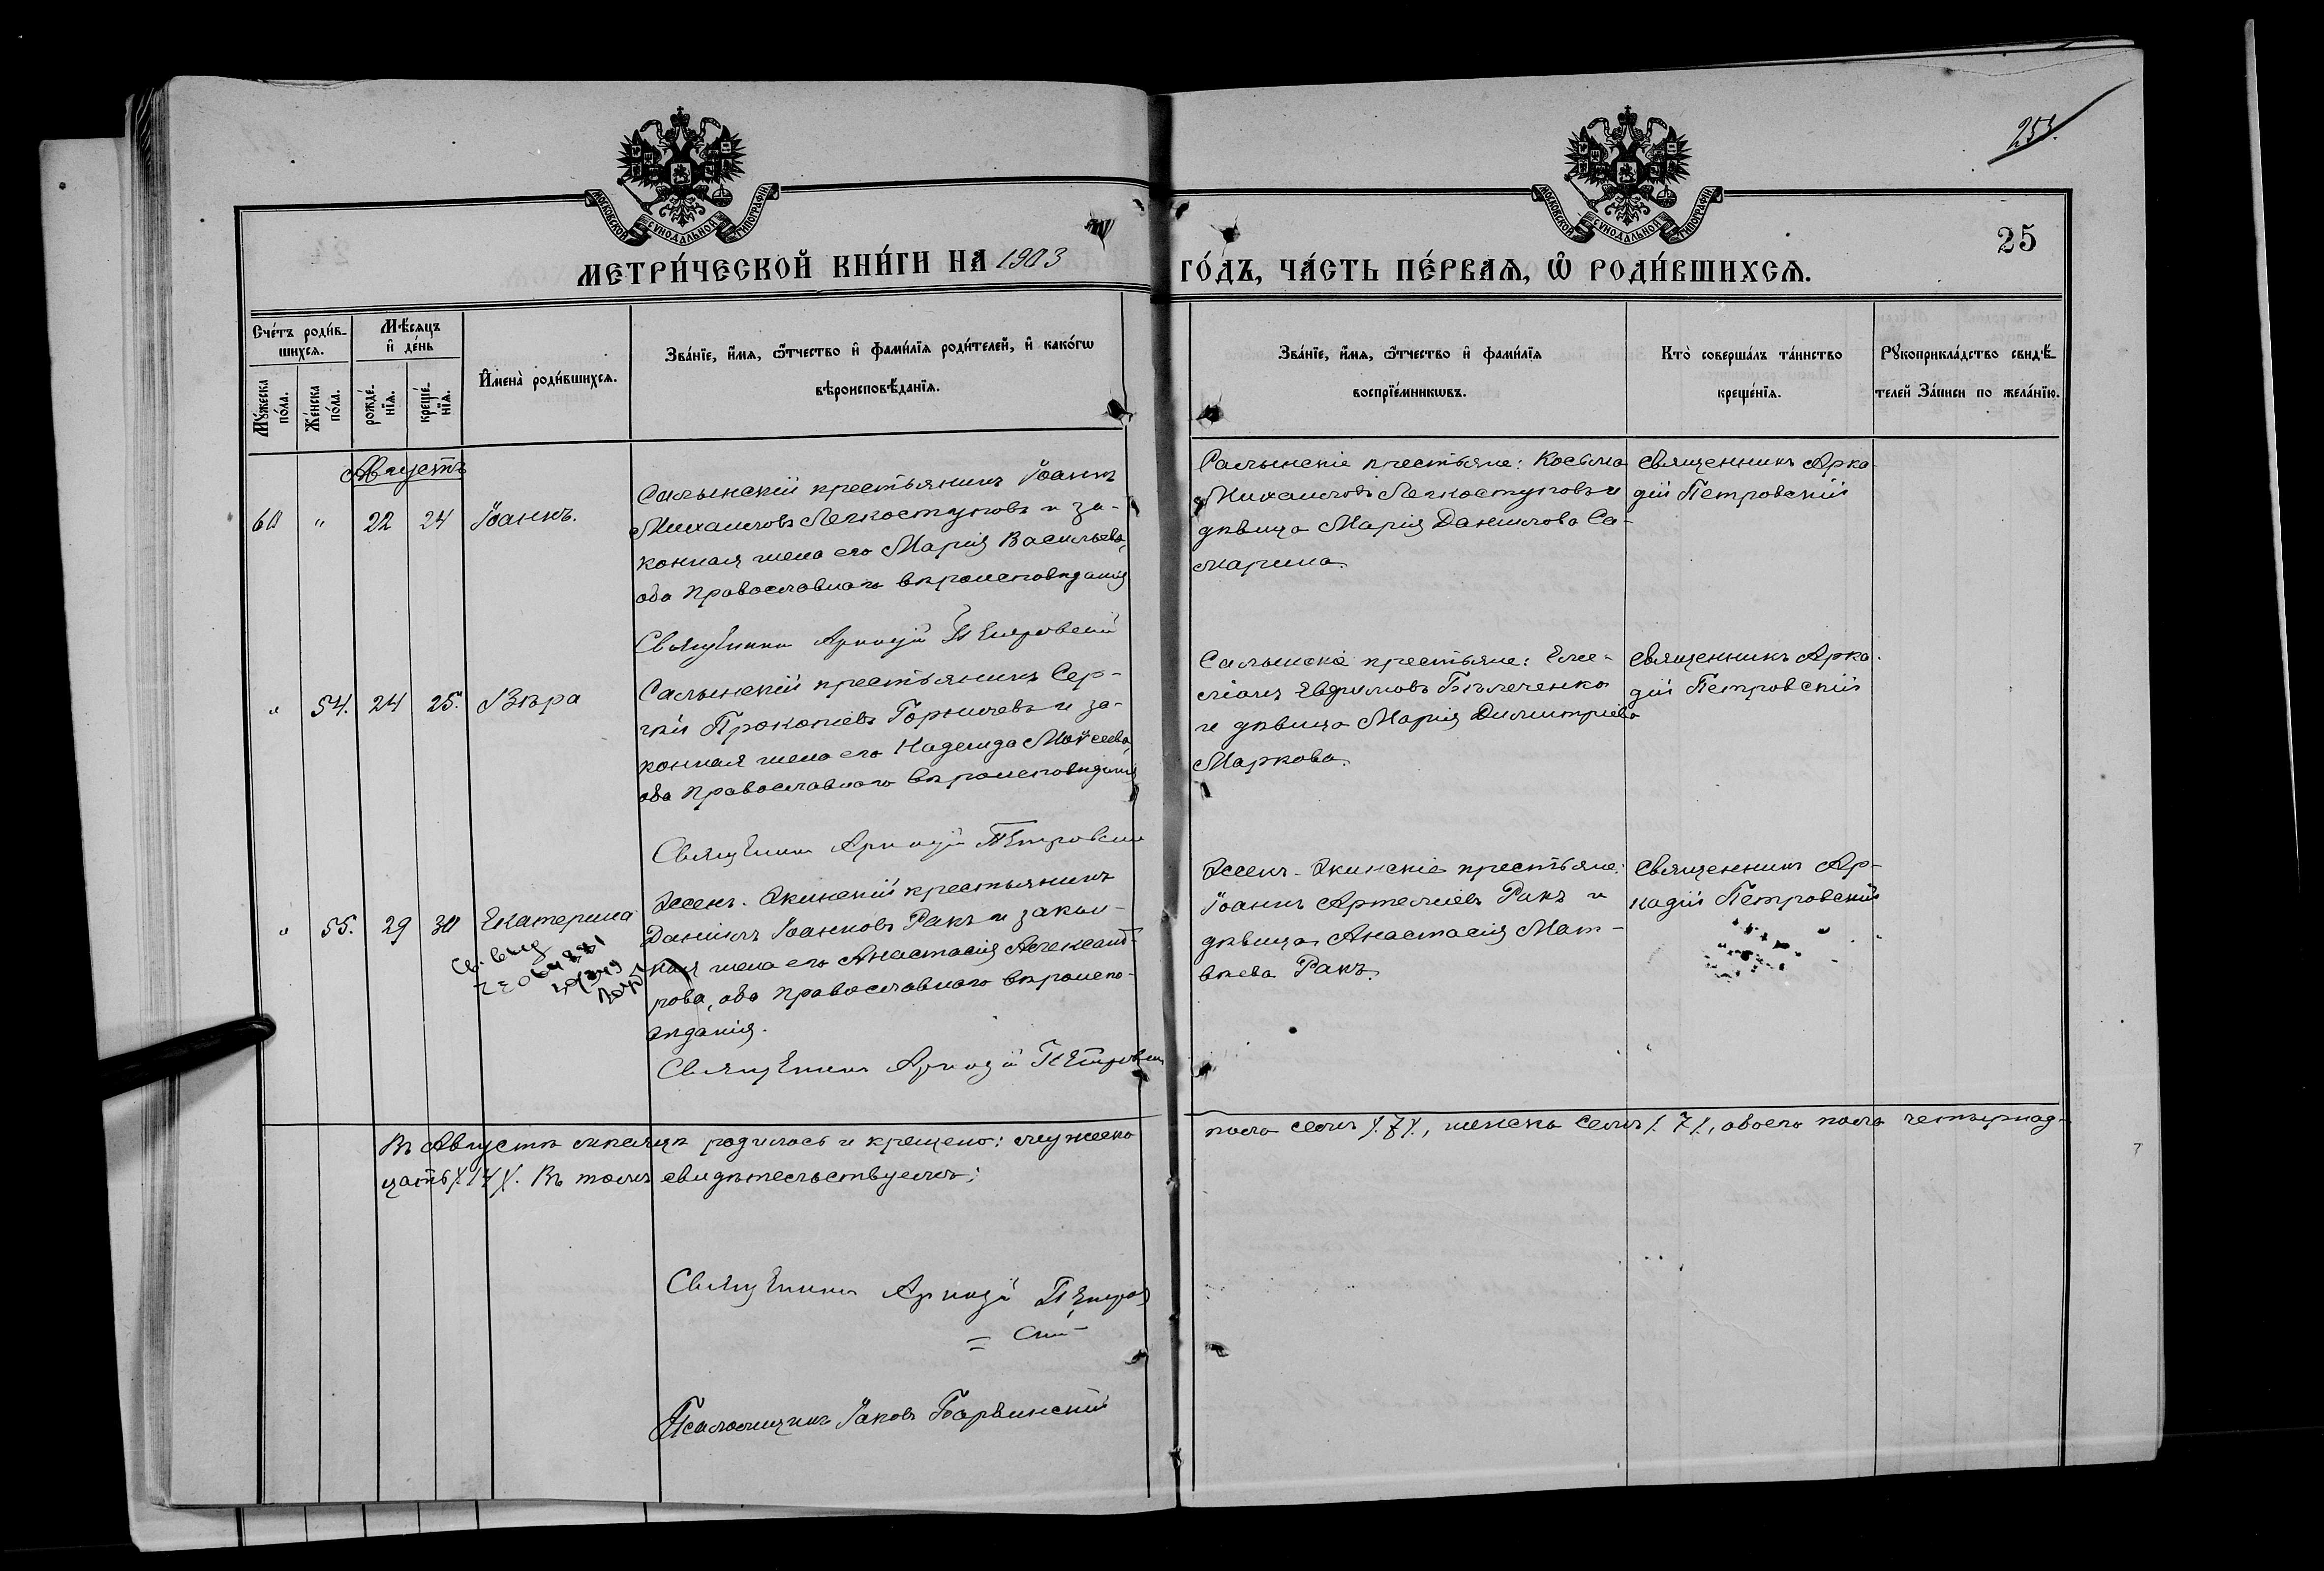 253.
25
МОСКОВСКОЙ СѴНОДАЛЬНОЙ ТИПОГРАФІИ
МОСКОВСКОЙ СѴНОДАЛЬНОЙ ТИПОГРАФІИ
МЕТРИ́ЧЕСКОЙ КНИ́ГИ НА 1903 ГО́ДЪ, ЧА́СТЬ ПЕ́РВАѦ, Ѽ РОДИ́ВШИХСѦ.
Сче́тъ роди́в-
шихсѧ.
Мꙋ́жеска по́ла.
Же́нска по́ла.
Мѣ́сѧцъ
и҆ де́нь
рожде́-
нїѧ.
креще́-
нїѧ.
И҆мена̀ роди́вшихсѧ.
Зва́нїе, и҆́мѧ, ѻ҆́тчество и҆ фами́лїѧ роди́телей, и҆ како́гѡ
вѣроисповѣ́данїѧ.
Зва́нїе, и҆́мѧ, ѻ҆́тчество и҆ фами́лїѧ
воспрїе́мникѡвъ.
Кто̀ соверша́лъ та́инство
креще́нїѧ.
Рꙋкоприкла́дство свидѣ́-
телей За́писи по жела́нїю.
Августъ
60 " 22 24 Іоаннъ.
Салынскій крестьянинъ Іоаннъ
Михаиловъ Легкоступовъ и за-
конная жена его Марія Васильева,
оба православнаго вѣроисповѣданія
Священникъ Аркадій Петровскій
Салынскіе крестьяне: Косьма
Михаиловъ Легкоступовъ и
дѣвица Марія Данилова Са-
марина.
Священникъ Арка-
дій Петровскій
" 54. 24 25. Вѣра
Салынскій крестьянинъ Сер-
гій Прокопіевъ Горничевъ и за-
конная жена его Надежда Моѵсеева,
оба православнаго вѣроисповѣданія
Священникъ Аркадій Петровскій
Салынскіе крестьяне: Еме-
ліанъ Евфимовъ Бѣлеченко
и дѣвица Марія Димитріева
Маркова.
Священникъ Арка-
дій Петровскій
" 55. 29 30 Екатерина
Св. выд
Эссенъ-Экинскій крестьянинъ
Даніилъ Іоанновъ Ракъ и закон-
ная жена его Анастасія Александ-
рова, оба православнаго вѣроиспо-
вѣданія.
Священникъ Аркадій Петровскій
Эссенъ-Экинскіе крестьяне:
Іоаннъ Артеміевъ Ракъ и
дѣвица Анастасія Мат-
вѣева Ракъ.
Священникъ Ар-
кадій Петровскій
Въ Августѣ мѣсяцѣ родилось и крещено: мужеска пола семь /.7/., женска семь /.7/., обоего пола четырнад-
цать /.14/. Въ томъ свидѣтельствуемъ:
Священникъ Аркадій Петров
= скій
Псаломщикъ Іаковъ Барвинскій